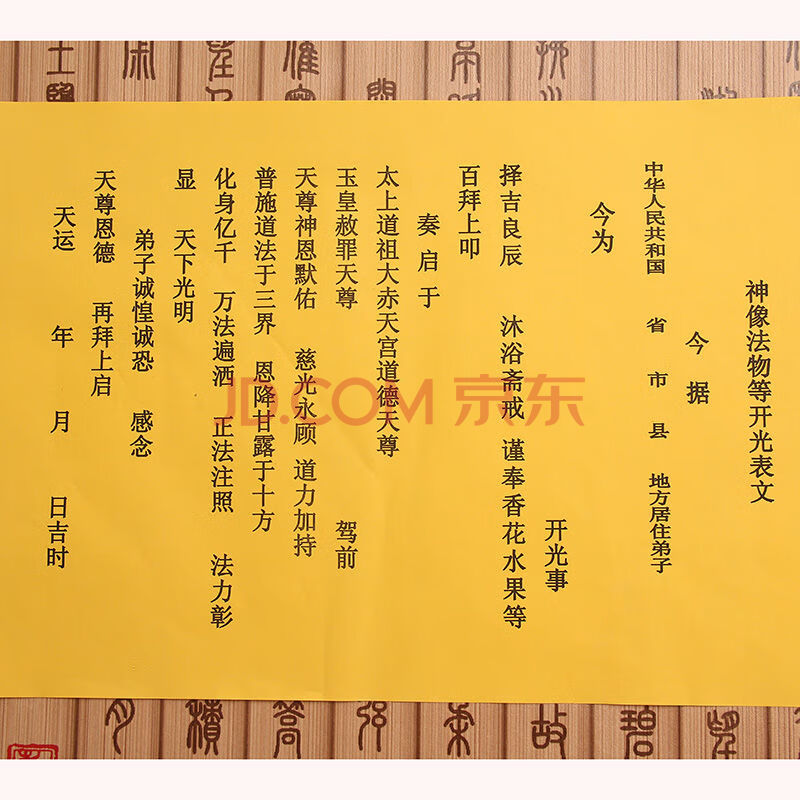 神像法物等开光表文
今据
中华人民共和国 省 市 县 地方居住弟子
今为
开光事
择吉良辰 沐浴斋戒 谨奉香花水果等
百拜上叩
奏启于
太上道祖大赤天宫道德天尊
玉皇赦罪天尊 驾前
天尊神恩默佑 慈光永顾 道力加持
普施道法于三界 恩降甘露于十方
化身亿千 万法遍洒 正法注照 法力彰
显 天下光明
弟子诚惶诚恐 感念
天尊恩德 再拜上启
天运 年 月 日吉时
JD.COM 京东